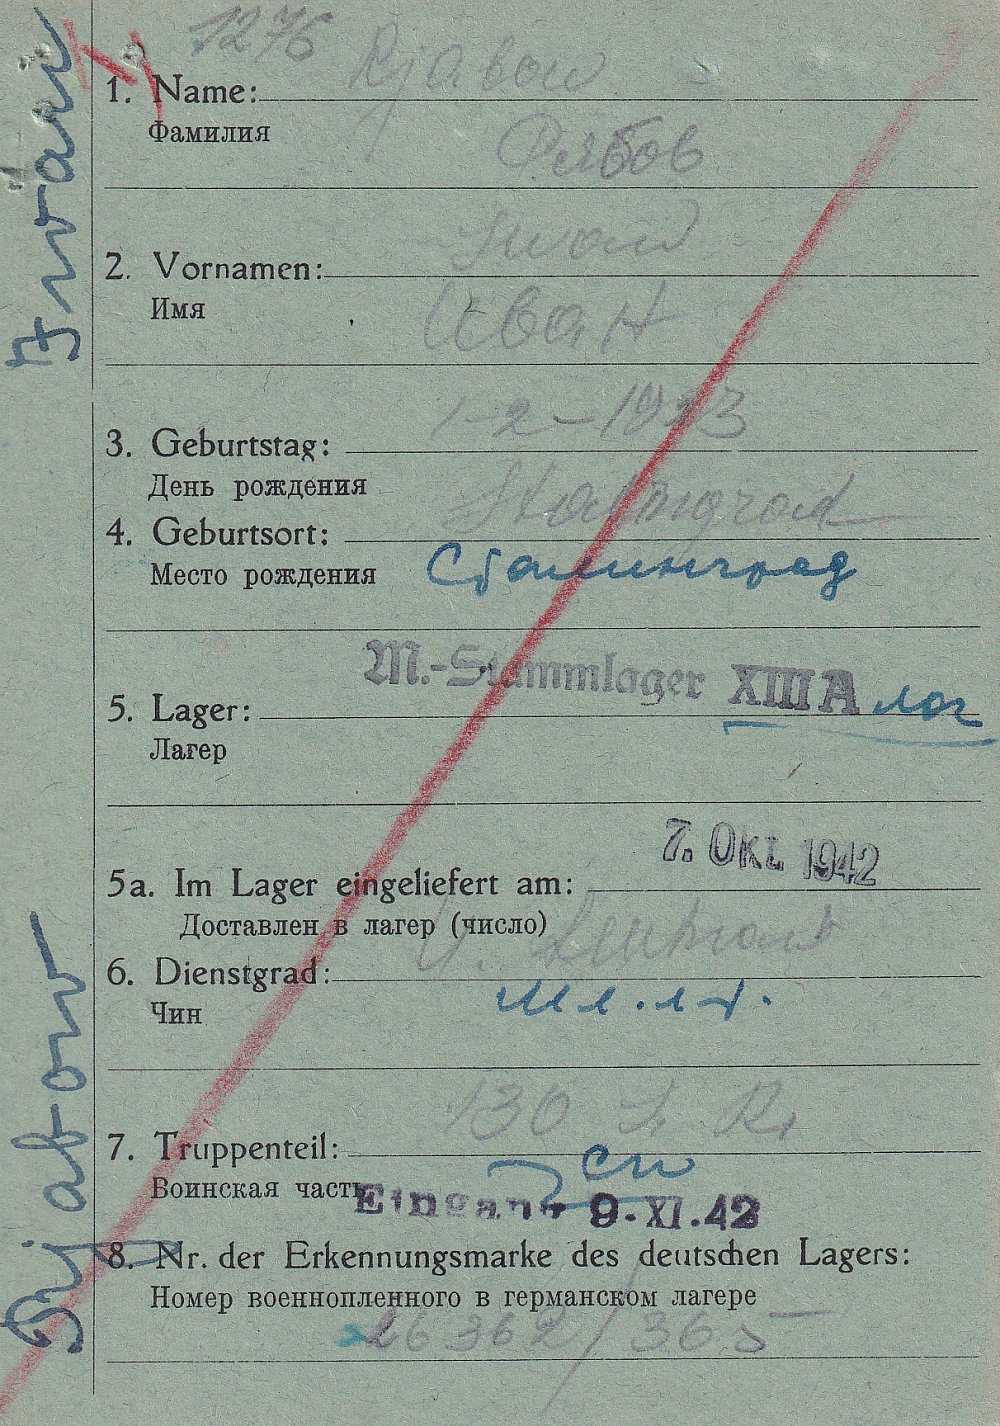 1276
Rjabow
1. Name:
Фамилия
Рябов
Iwan
2. Vornamen:
Имя
Иван
1-2-1923
3. Geburtstag:
День рождения
Stalingrad
4. Geburtsort:
Место рождения Сталинград
M.-Stammlager XIII A лаг
5. Lager:
Лагер
7. Okt. 1942
5a. Im Lager eingeliefert am:
Доставлен в лагер (число)
U. Leutnant
6. Dienstgrad:
Чин
мл. л-т.
130 I. R.
7. Truppenteil:
сп
Воинская часть
Eingang 9. XI. 42
8. Nr. der Erkennungsmarke des deutschen Lagers:
Номер военнопленного в германском лагере
26362/365
Rjabow Iwan